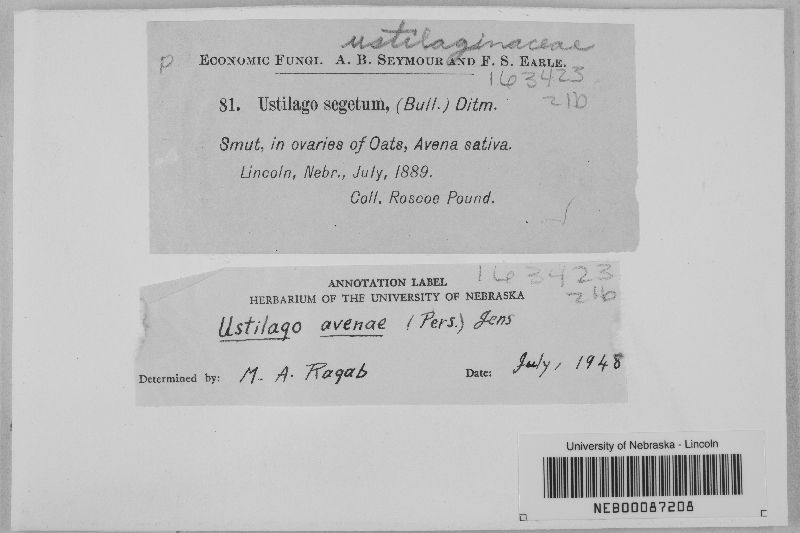 ustilaginaceae
P ECONOMIC FUNGI. A. B. SEYMOUR AND F. S. EARLE.
163423
21b
81. Ustilago segetum, (Bull.) Ditm.
Smut, in ovaries of Oats, Avena sativa.
Lincoln, Nebr., July, 1889.
Coll. Roscoe Pound.
163423
21b
ANNOTATION LABEL
HERBARIUM OF THE UNIVERSITY OF NEBRASKA
Ustilago avenae (Pers.) Jens
Determined by: M. A. Ragab Date: July, 1948
University of Nebraska - Lincoln
NEB00087208